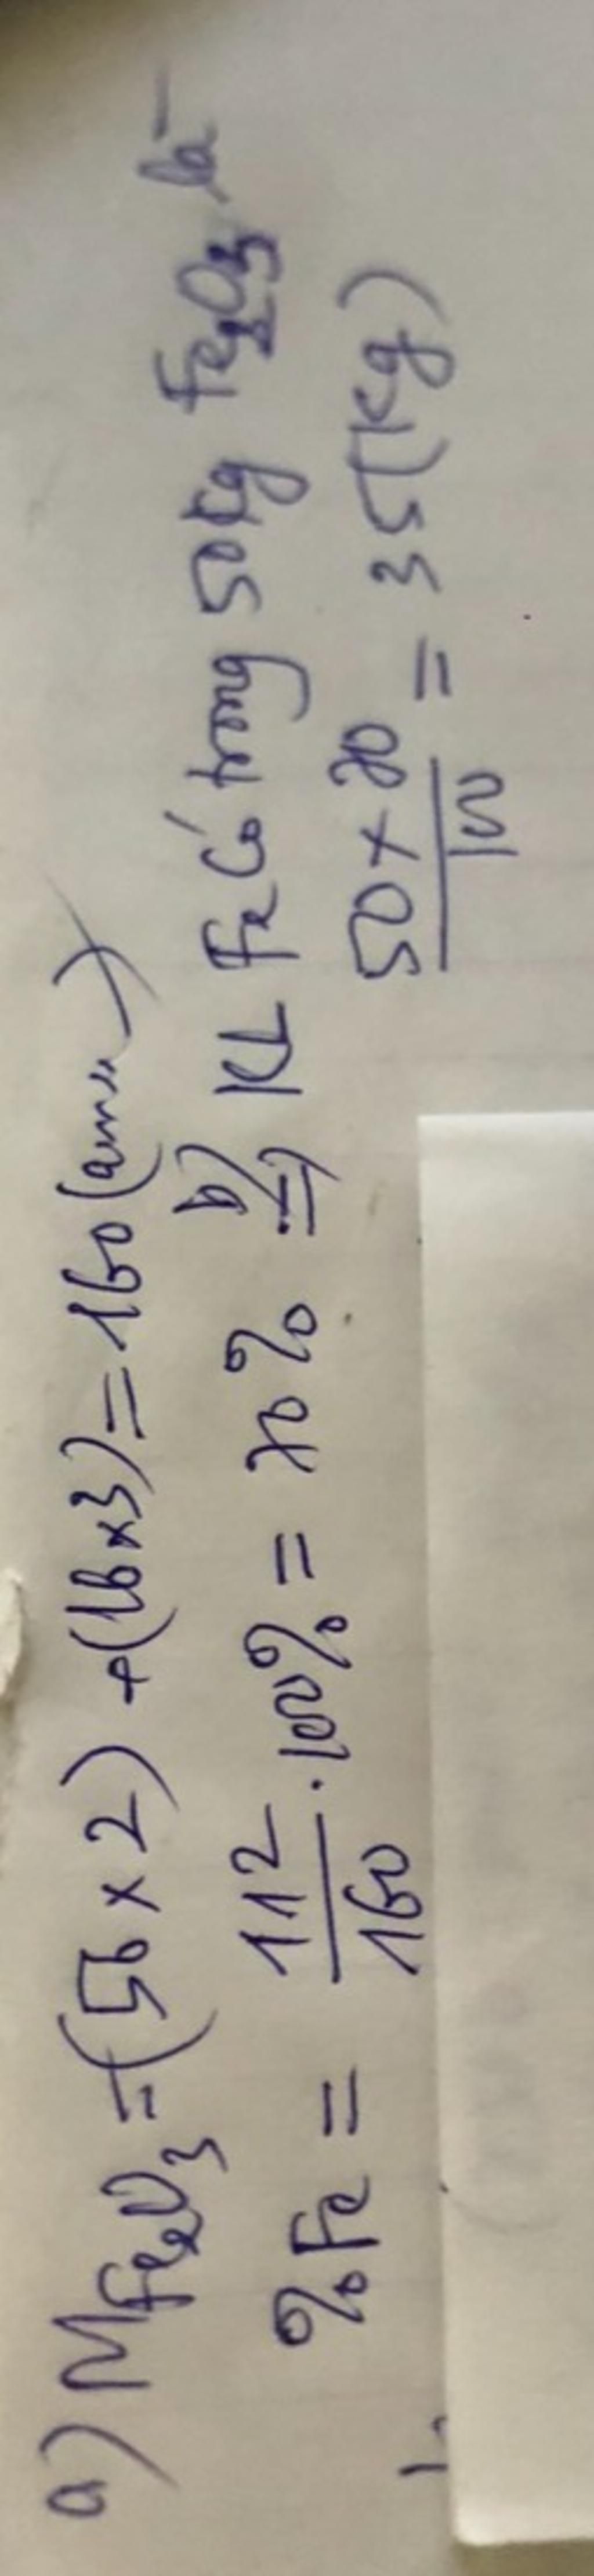 a) M Fe2O3 = (56 x 2) + (16 x 3) = 160 (amu)
%Fe = 112/160 . 100% = 70%
b) KL Fe có trong 50kg Fe2O3 là
50 x 70 / 100 = 35 (kg)